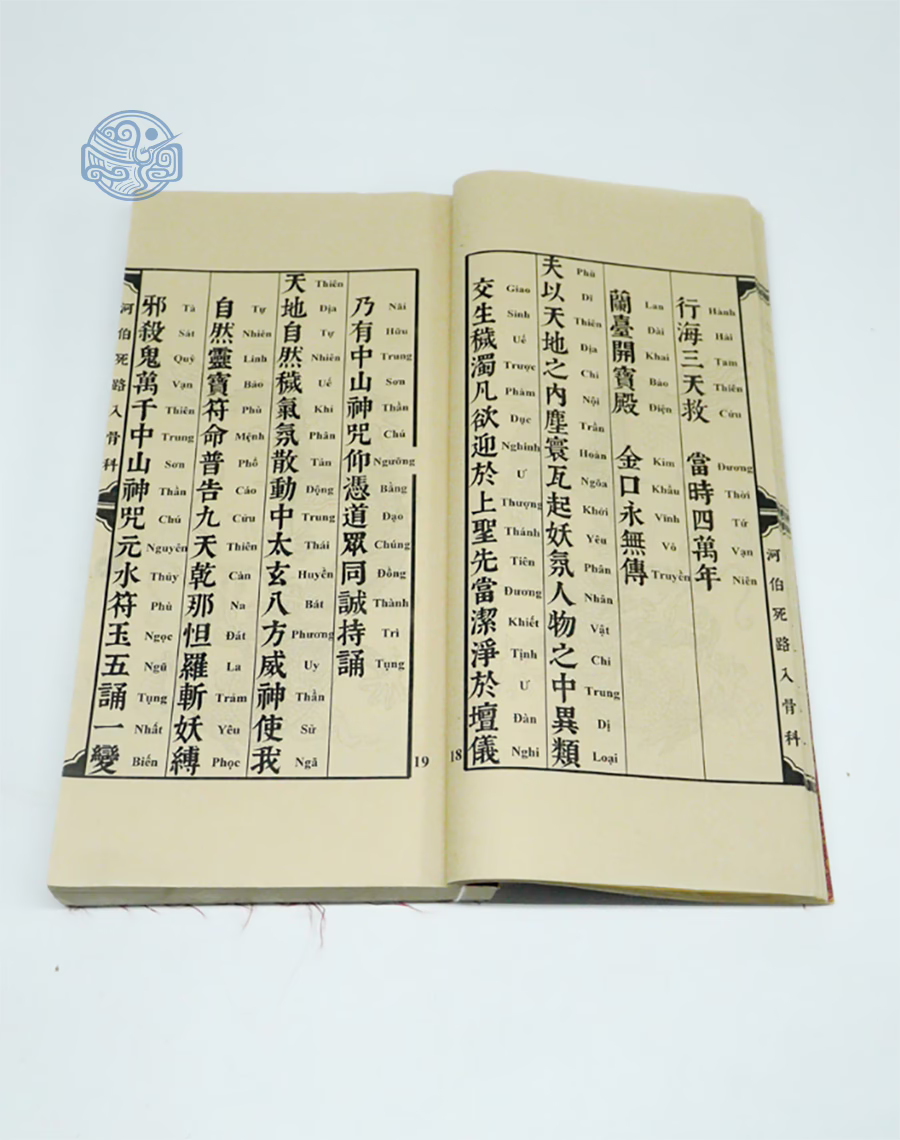 河伯死路入骨科
行海三天救 當時四萬年
Hành Hải Tam Thiên Cứu Đương Thời Tứ Vạn Niên
蘭臺開寶殿 金口永無傳
Lan Dài Khai Bảo Điện Kim Khẩu Vĩnh Vô Truyền
夫以天地之內塵寰瓦起妖氛人物之中異類
Phù Dĩ Thiên Địa Chi Nội Trần Hoàn Ngõa Khởi Yêu Phân Nhân Vật Chi Trung Dị Loại
交生穢濁凡欲迎於上聖先當潔淨於壇儀
Giao Sinh Uế Trược Phàm Dục Nghinh Ư Thượng Thánh Tiên Đương Khiết Tịnh Ư Đàn Nghi
18
乃有中山神咒仰憑道眾同誠持誦
Nãi Hữu Trung Sơn Thần Chú Ngưỡng Bằng Đạo Chúng Đồng Thành Trì Tụng
天地自然穢氣氛散動中太玄八方威神使我
Thiên Địa Tự Nhiên Uế Khí Phân Tán Động Trung Thái Huyền Bát Phương Uy Thần Sử Ngã
自然靈寶符命普告九天乾那怛羅斬妖縛
Tự Nhiên Linh Bảo Phù Mệnh Phổ Cáo Cửu Thiên Càn Na Đát La Trảm Yêu Phọc
邪殺鬼萬千中山神咒元水符玉五誦一變
Tà Sát Quỷ Vạn Thiên Trung Sơn Thần Chú Nguyên Thủy Phù Ngọc Ngũ Tụng Nhất Biến
河伯死路入骨科
19